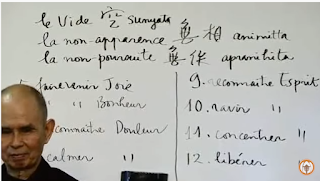 le Vide 空 Sunyata
la non-apparence 無相 animitta
la non-poursuite 無作 apranihita
faire venir Joie
" " Bonheur
connaître Douleur
calmer "
9. reconnaître Esprit
10. ravir "
11. concentrer "
12. libérer